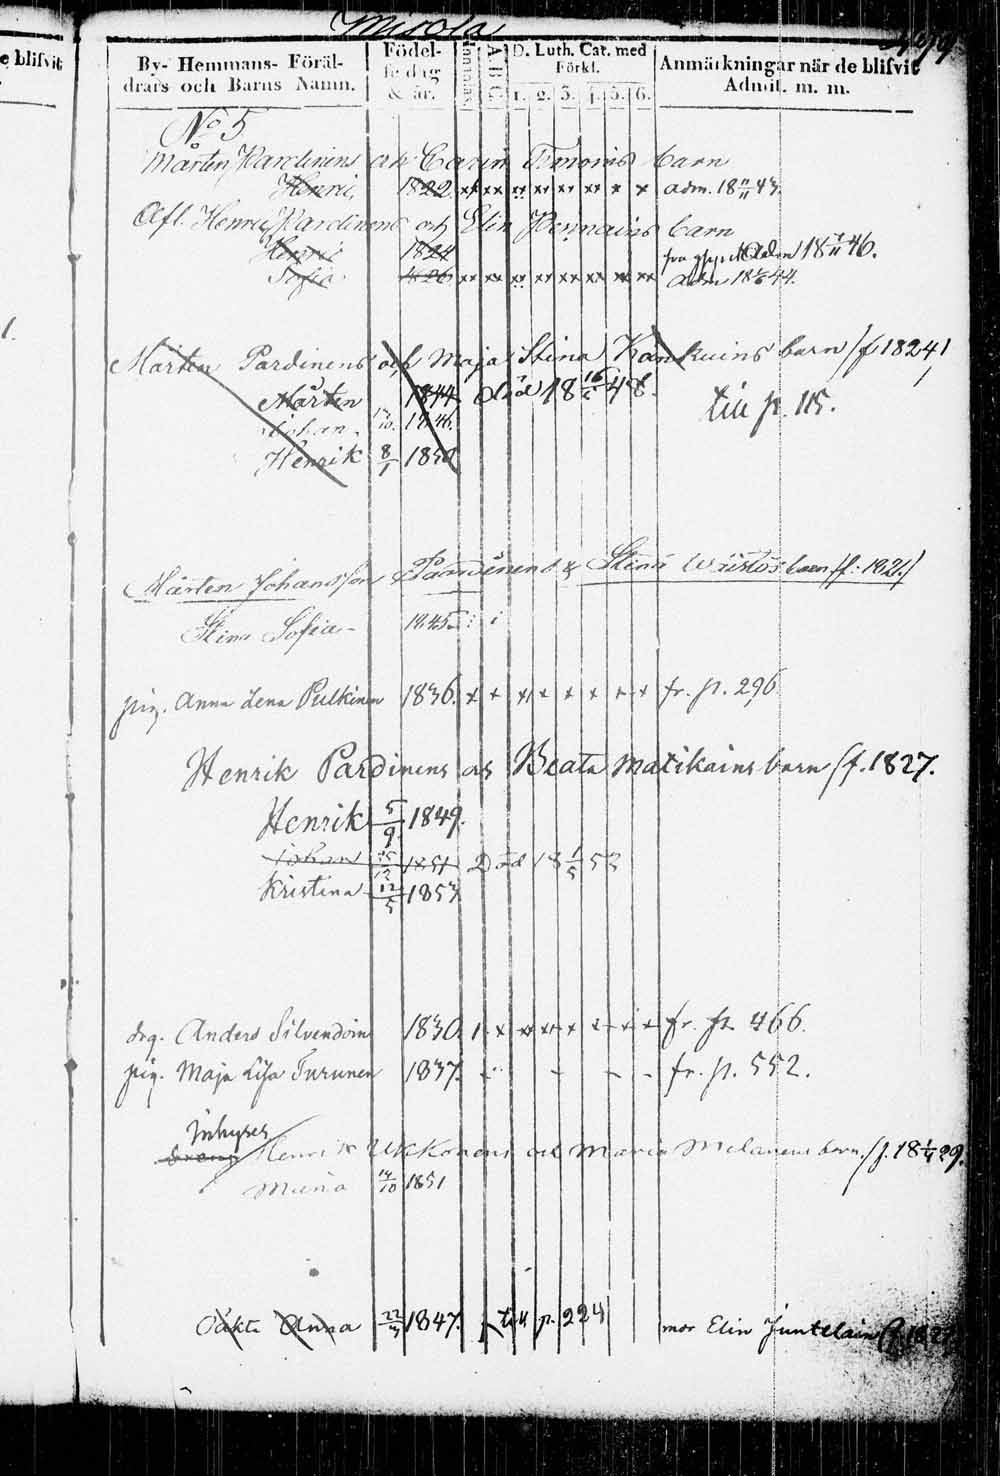 Misola
499.
e blifvit
By- Hemmans- Föräl-
drars och Barns Namn.
Födel-
sedag
& år.
A B C
D. Luth. Cat. med
Förkl.
1. 2. 3. 4. 5. 6.
Anmärkningar när de blifvit
Admit. m. m.
No 5
Mårten Pardinens och Carin Timoins barn
Henric 1822 adm. 18 11/11 43.
Afl. Henric Pardinens och Elin Pennains barn
Henric 1824 Adm 18 46.
Sofia 1826 adm 18 44.
Mårten Pardinens och Maja Stina Kankuins barn (f 1824)
Mårten 1844 död 18 16/5 48.
till p. 115.
Johan 1846.
Henrik 8/1 1850
Mårten Johansson & Stina barn (f: 1821)
Stina Sofia 1845
pig. Anna Lena Pulkinen 1836. fr. p. 296
Henrik Pardinens och Beata Matikains barn (f. 1827.
Henrik 5/9 1849.
Johan 1851 Död 18 1/5 53
Kristina 12/5 1853
drg. Anders Silvendoin 1830. fr. p. 466.
pig. Maja Lisa Turunen 1837. fr. p. 552.
Inhyses
Henrik Ukkonens och Maria Melanens barn. (f. 18 29.
Maria 14/10 1851
Oäkta Anna 1847. till p. 224 mor Elin Juntlain